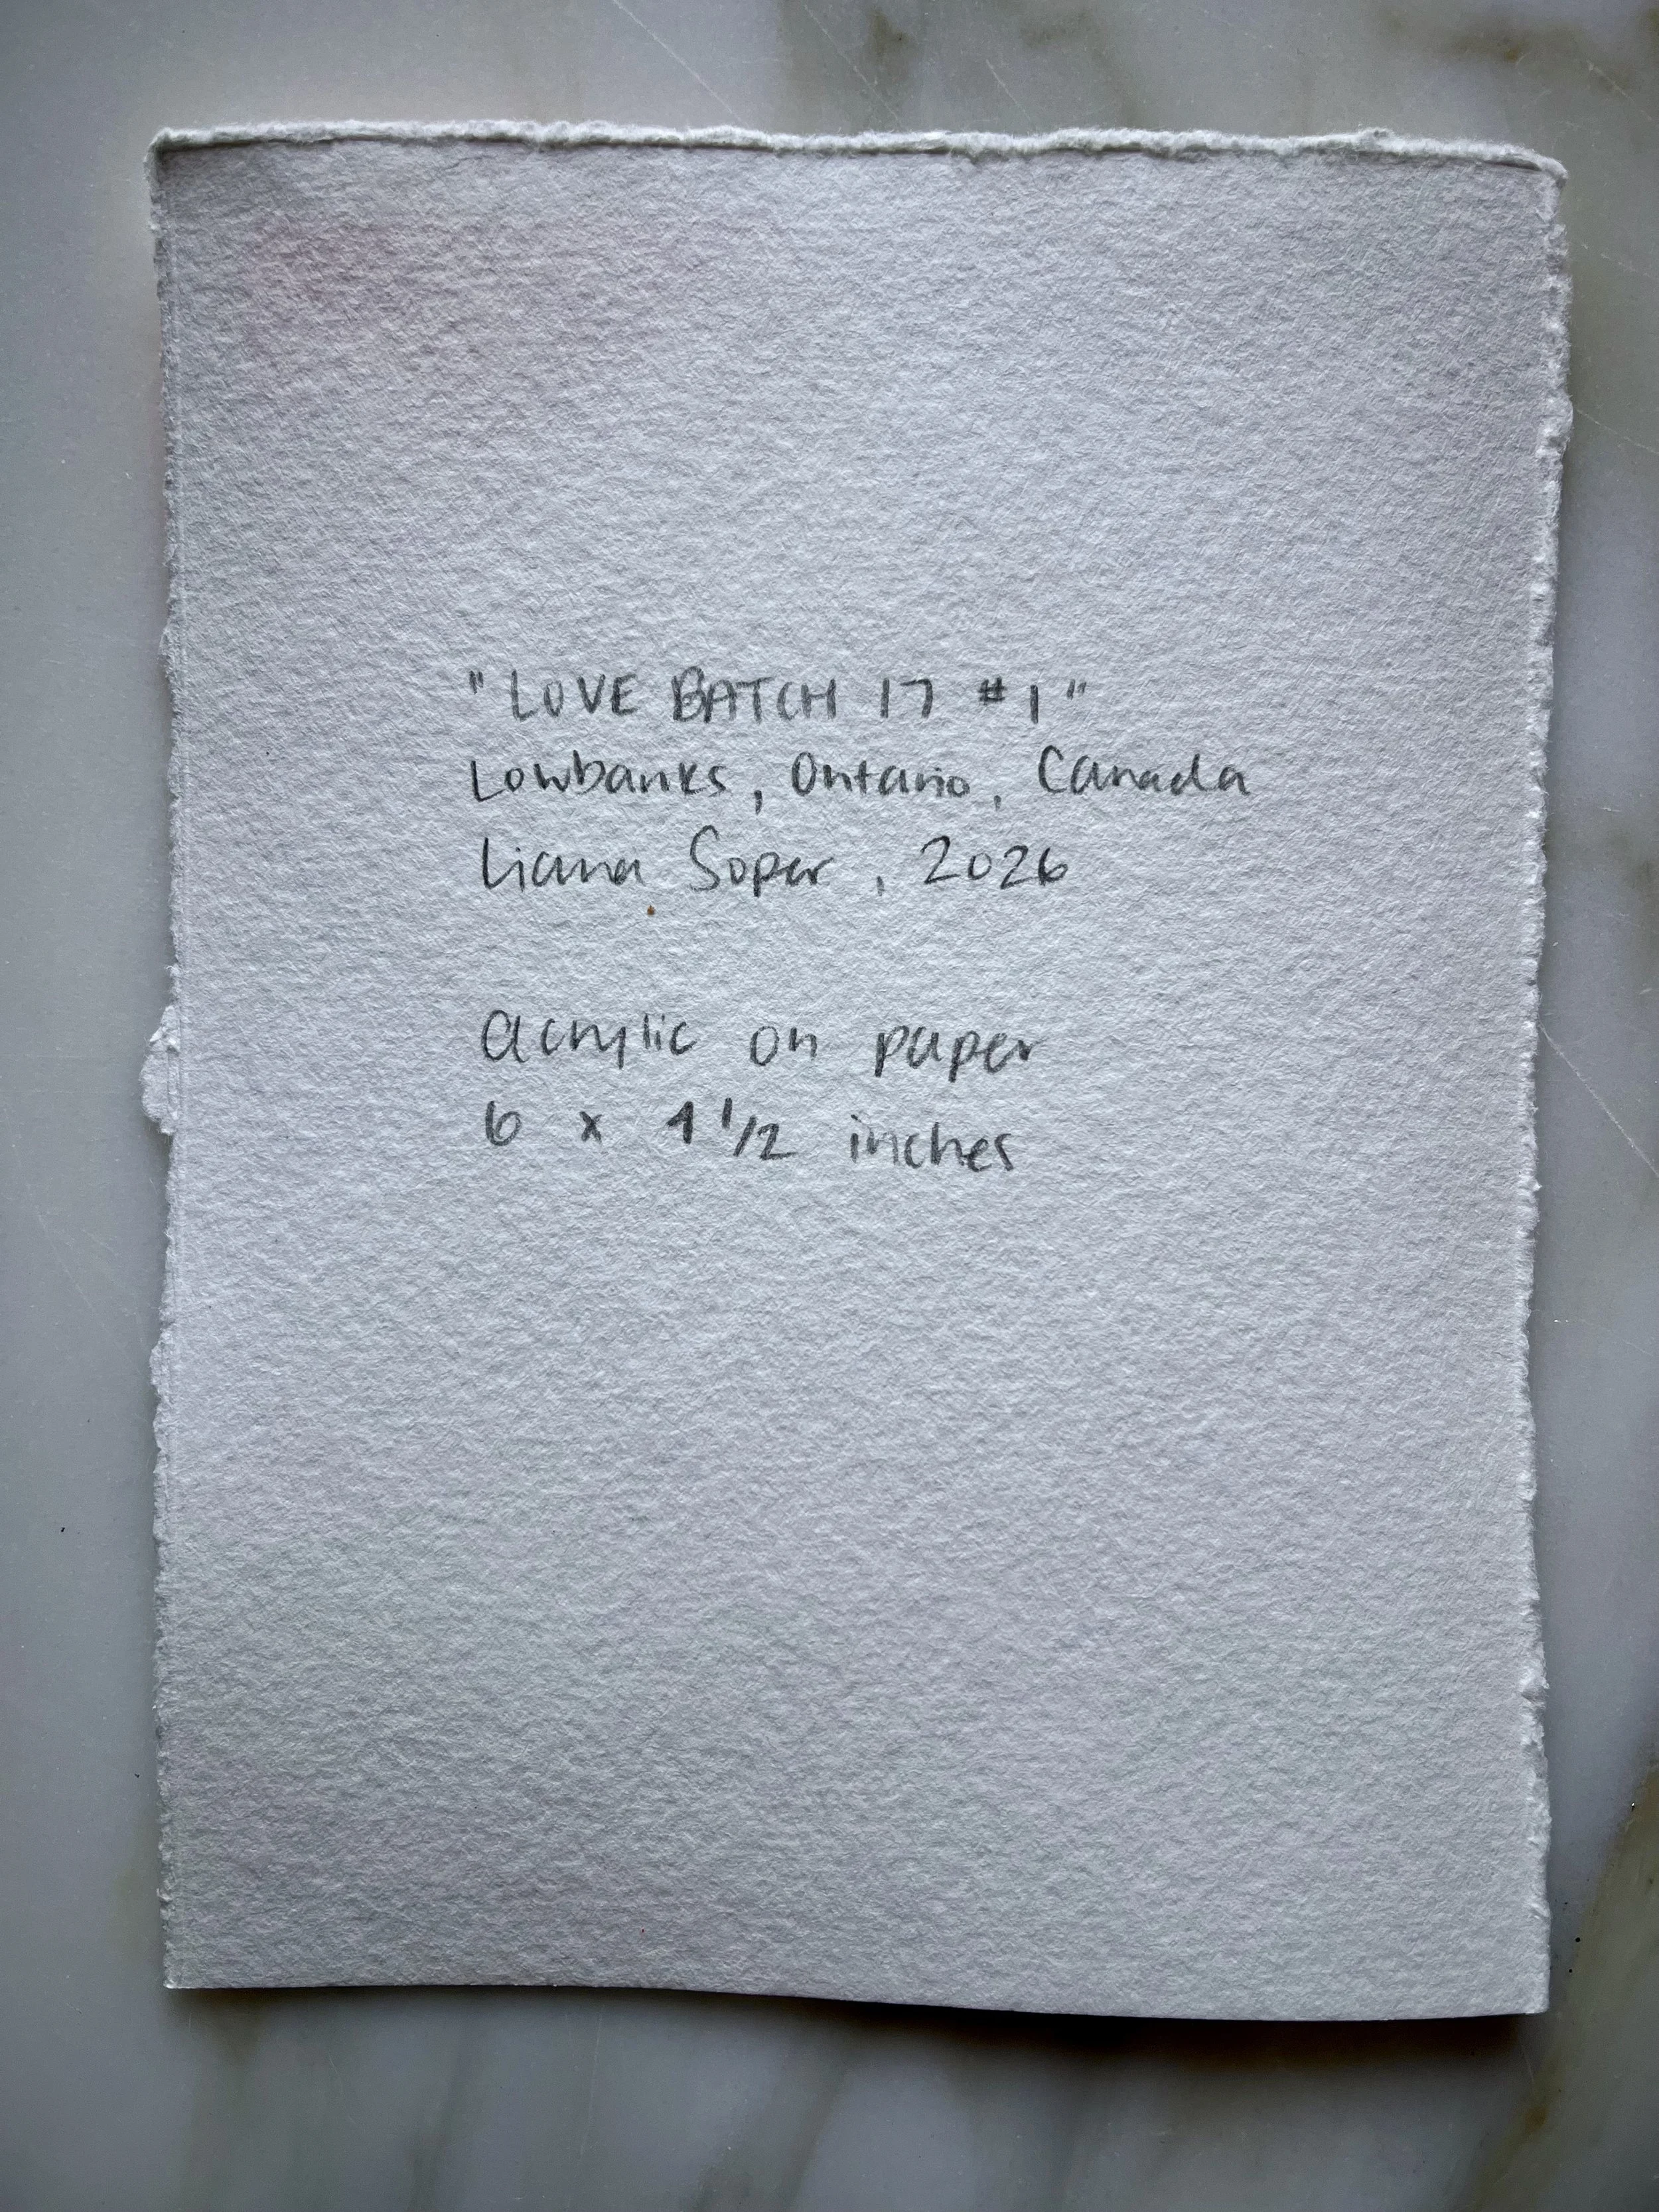 "LOVE BATCH 17 #1"
Lowbanks, Ontario, Canada
Liana Soper, 2026
acrylic on paper
6 x 4 1/2 inches